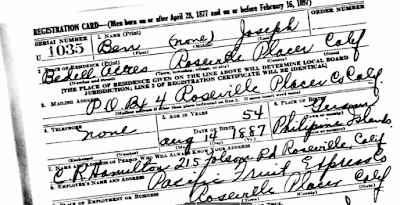 REGISTRATION CARD—(Men born on or after April 28, 1877 and on or before February 16, 1897)
SERIAL NUMBER 1. NAME (Print) ORDER NUMBER
U 1035 Ben (none) Joseph
(First) (Middle) (Last)
Bedell Acres Roseville Placer Calif
2. PLACE OF RESIDENCE (Print)
[THE PLACE OF RESIDENCE GIVEN ON THE LINE ABOVE WILL DETERMINE LOCAL BOARD
JURISDICTION; LINE 2 OF REGISTRATION CERTIFICATE WILL BE IDENTICAL]
3. MAILING ADDRESS
P.O. Bx 4 Roseville Placer Co Calif
4. TELEPHONE 5. AGE IN YEARS 6. PLACE OF BIRTH
none 54
DATE OF BIRTH
Aug 14 1887 Philipine Islands
7. NAME AND ADDRESS OF PERSON WHO WILL ALWAYS KNOW YOUR ADDRESS
C R Hamilton 215 Folsom Rd Roseville Calif
8. EMPLOYER'S NAME AND ADDRESS
Pacific Fruit Express Co
PLACE OF EMPLOYMENT OR BUSINESS
Roseville Placer Calif